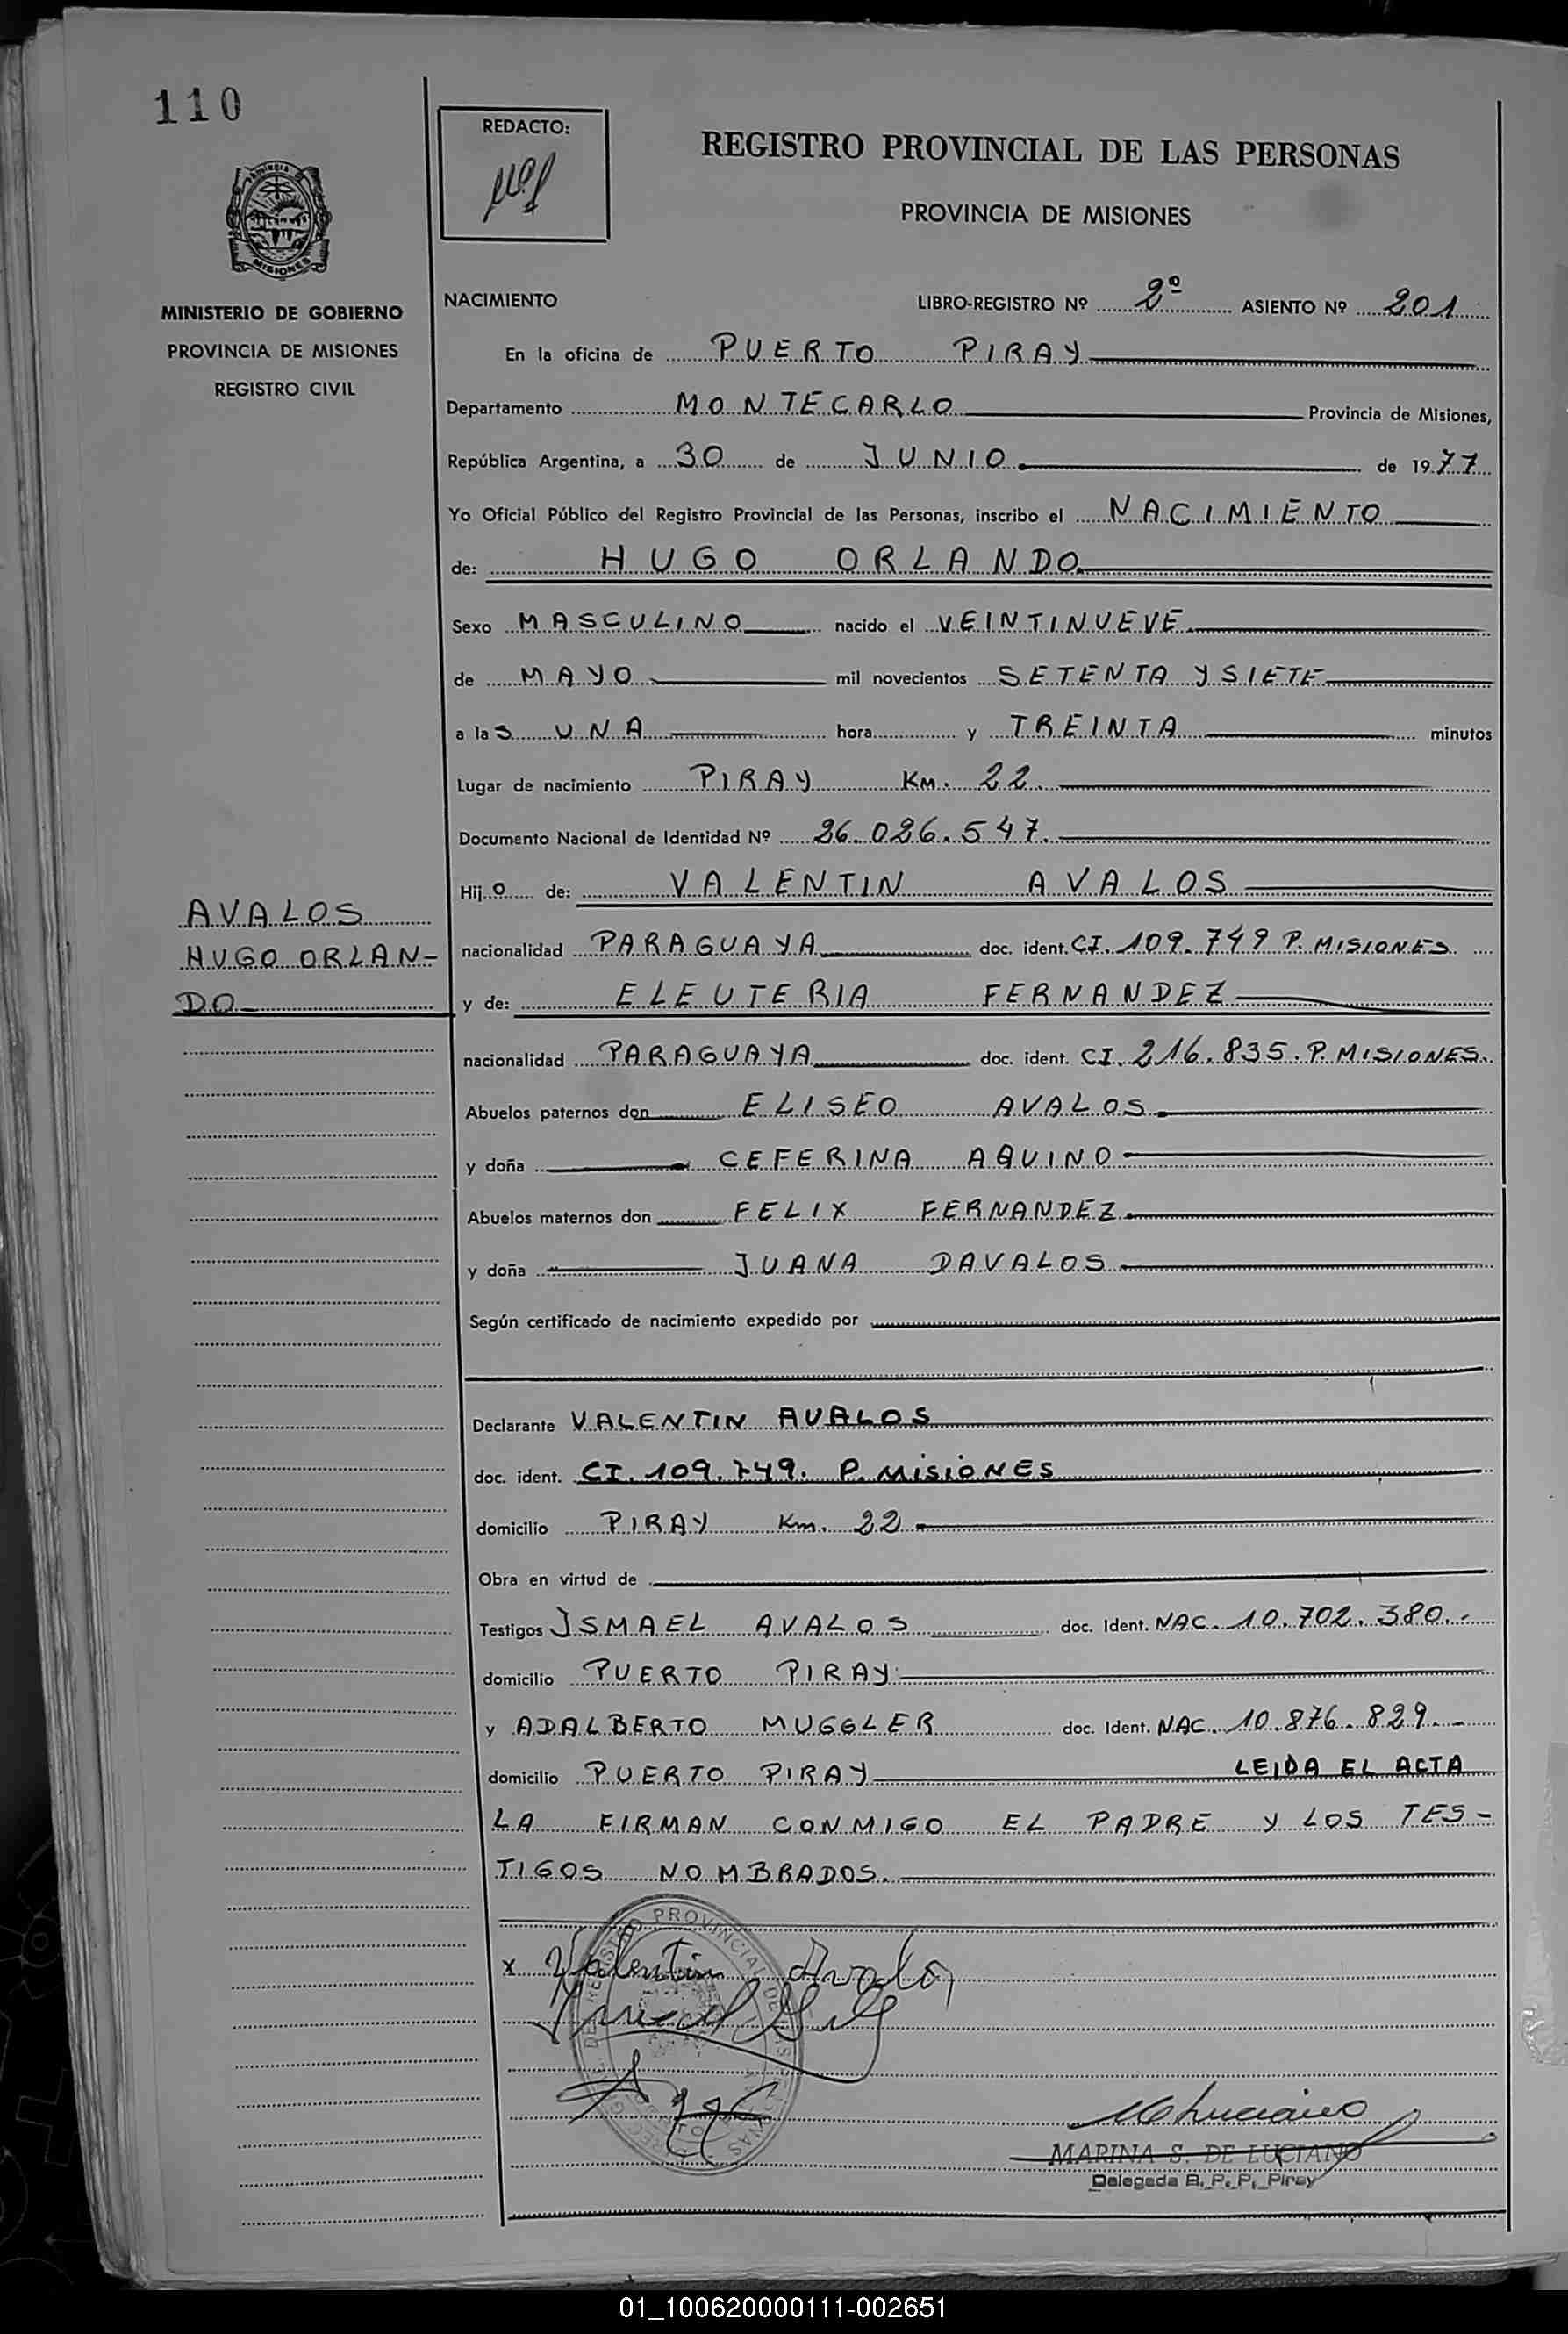 110
REDACTO:
REGISTRO PROVINCIAL DE LAS PERSONAS
PROVINCIA DE MISIONES
MISIONES
MINISTERIO DE GOBIERNO
PROVINCIA DE MISIONES
REGISTRO CIVIL
NACIMIENTO LIBRO-REGISTRO Nº 2º ASIENTO Nº 201
En la oficina de PUERTO PIRAY
Departamento MONTECARLO Provincia de Misiones,
República Argentina, a 30 de JUNIO. de 1977
Yo Oficial Público del Registro Provincial de las Personas, inscribo el NACIMIENTO
de: HUGO ORLANDO.
Sexo MASCULINO nacido el VEINTINUEVE.
de MAYO mil novecientos SETENTA Y SIETE
a las UNA hora y TREINTA minutos
Lugar de nacimiento PIRAY KM. 22.
Documento Nacional de Identidad Nº 26.026.547.
Hijo de: VALENTIN AVALOS
AVALOS
HUGO ORLAN-
DO
nacionalidad PARAGUAYA doc. ident. CI. 109.749 P. MISIONES
y de: ELEUTERIA FERNANDEZ
nacionalidad PARAGUAYA doc. ident. CI. 216.835. P. MISIONES.
Abuelos paternos don ELISEO AVALOS.
y doña CEFERINA AQUINO
Abuelos maternos don FELIX FERNANDEZ.
y doña JUANA DAVALOS
Según certificado de nacimiento expedido por
Declarante VALENTIN AVALOS
doc. ident. CI. 109.749. P. MISIONES
domicilio PIRAY Km. 22.
Obra en virtud de
Testigos ISMAEL AVALOS doc. Ident. NAC. 10.702.380.-
domicilio PUERTO PIRAY.
y ADALBERTO MUGGLER doc. Ident. NAC. 10.876.829.-
domicilio PUERTO PIRAY LEIDA EL ACTA
LA FIRMAN CONMIGO EL PADRE Y LOS TES-
TIGOS NOMBRADOS.
x Valentin Avalos
MARINA S. DE LUCIANO
Delegada R. P. P. Piray
01_100620000111-002651